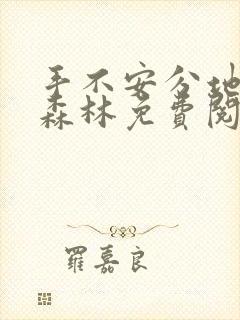 手不安分地
森林免费阅
羅嘉良